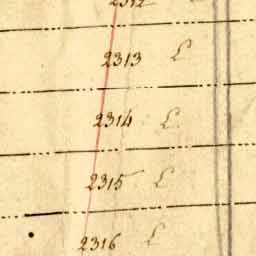 2312
2313 L
2314 L
2315 L
2316 L